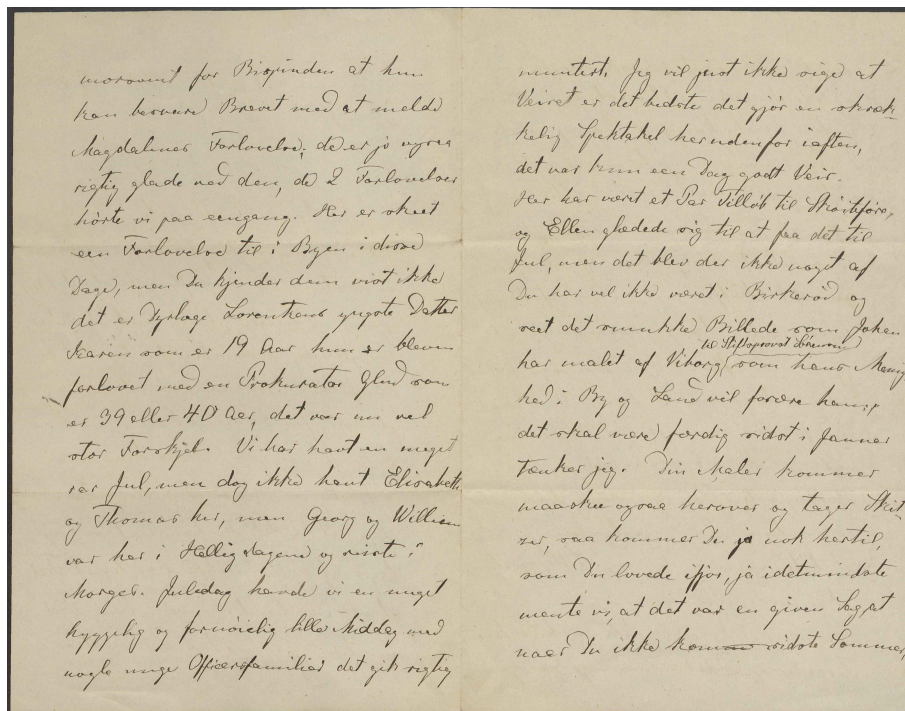 morsomt for Bispinden at hun
kan besvare Brevet med at melde
Magdalenes Forlovelse; de er jo nysre
rigtig glade ved den, de 2 Forlovelser
hørte vi paa eengang. Her er skeet
een Forlovelse til i Byen i disse
Dage, men Du kjender dem vist ikke
det er Dyrlæge Lorentzens yngste Datter
Karen som er 19 Aar hun er bleven
forlovet med en Prokurator Glud som
er 39 eller 40 Aar, det var nu vel
stor Forskjel. Vi har havt en meget
rar Jul, men dog ikke havt Elisabeth
og Thomas her, men Georg og William
var her i Helligdagene og reiste i
Morges. Juledag havde vi en meget
hyggelig og fornøielig lille Middag med
nogle unge Officersfamilier det gik rigtig
muntert. Jeg vil just ikke sige at
Veiret er det bedste det gjør en skræk-
kelig Spektakel herudenfor iaften,
det var kun een Dag godt Veir.
Her har været et Par Tilløb til Skøiteføre,
og Ellen glædede sig til at faa det til
Jul, men det blev der ikke noget af
Du har vel ikke været i Birkerød og
seet det smukke Billede som Johan
til Stiftsprovst Sørensen
har malet af Viborg som hans Menig
hed i By og Land vil forære ham,
det skal være færdig sidst i Januar
tænker jeg. Din Maler kommer
maaskee ogsaa herover og tager Skit
zer, saa kommer Du jo nok hertil,
som Du lovede ifjor, ja idetmindste
mente vi, at det var en given Sag, at
naar Du ikke kom sidste Sommer,